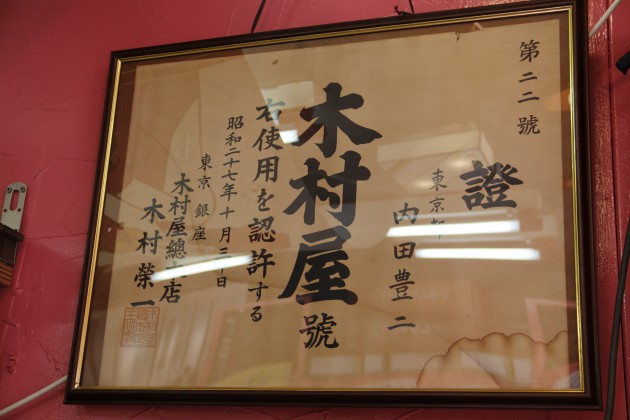 第二二號
證
東京都
内田豊二
木村屋號
右使用を認許する
昭和二十七年十月二十日
東京 銀座
木村屋總本店
木村榮一